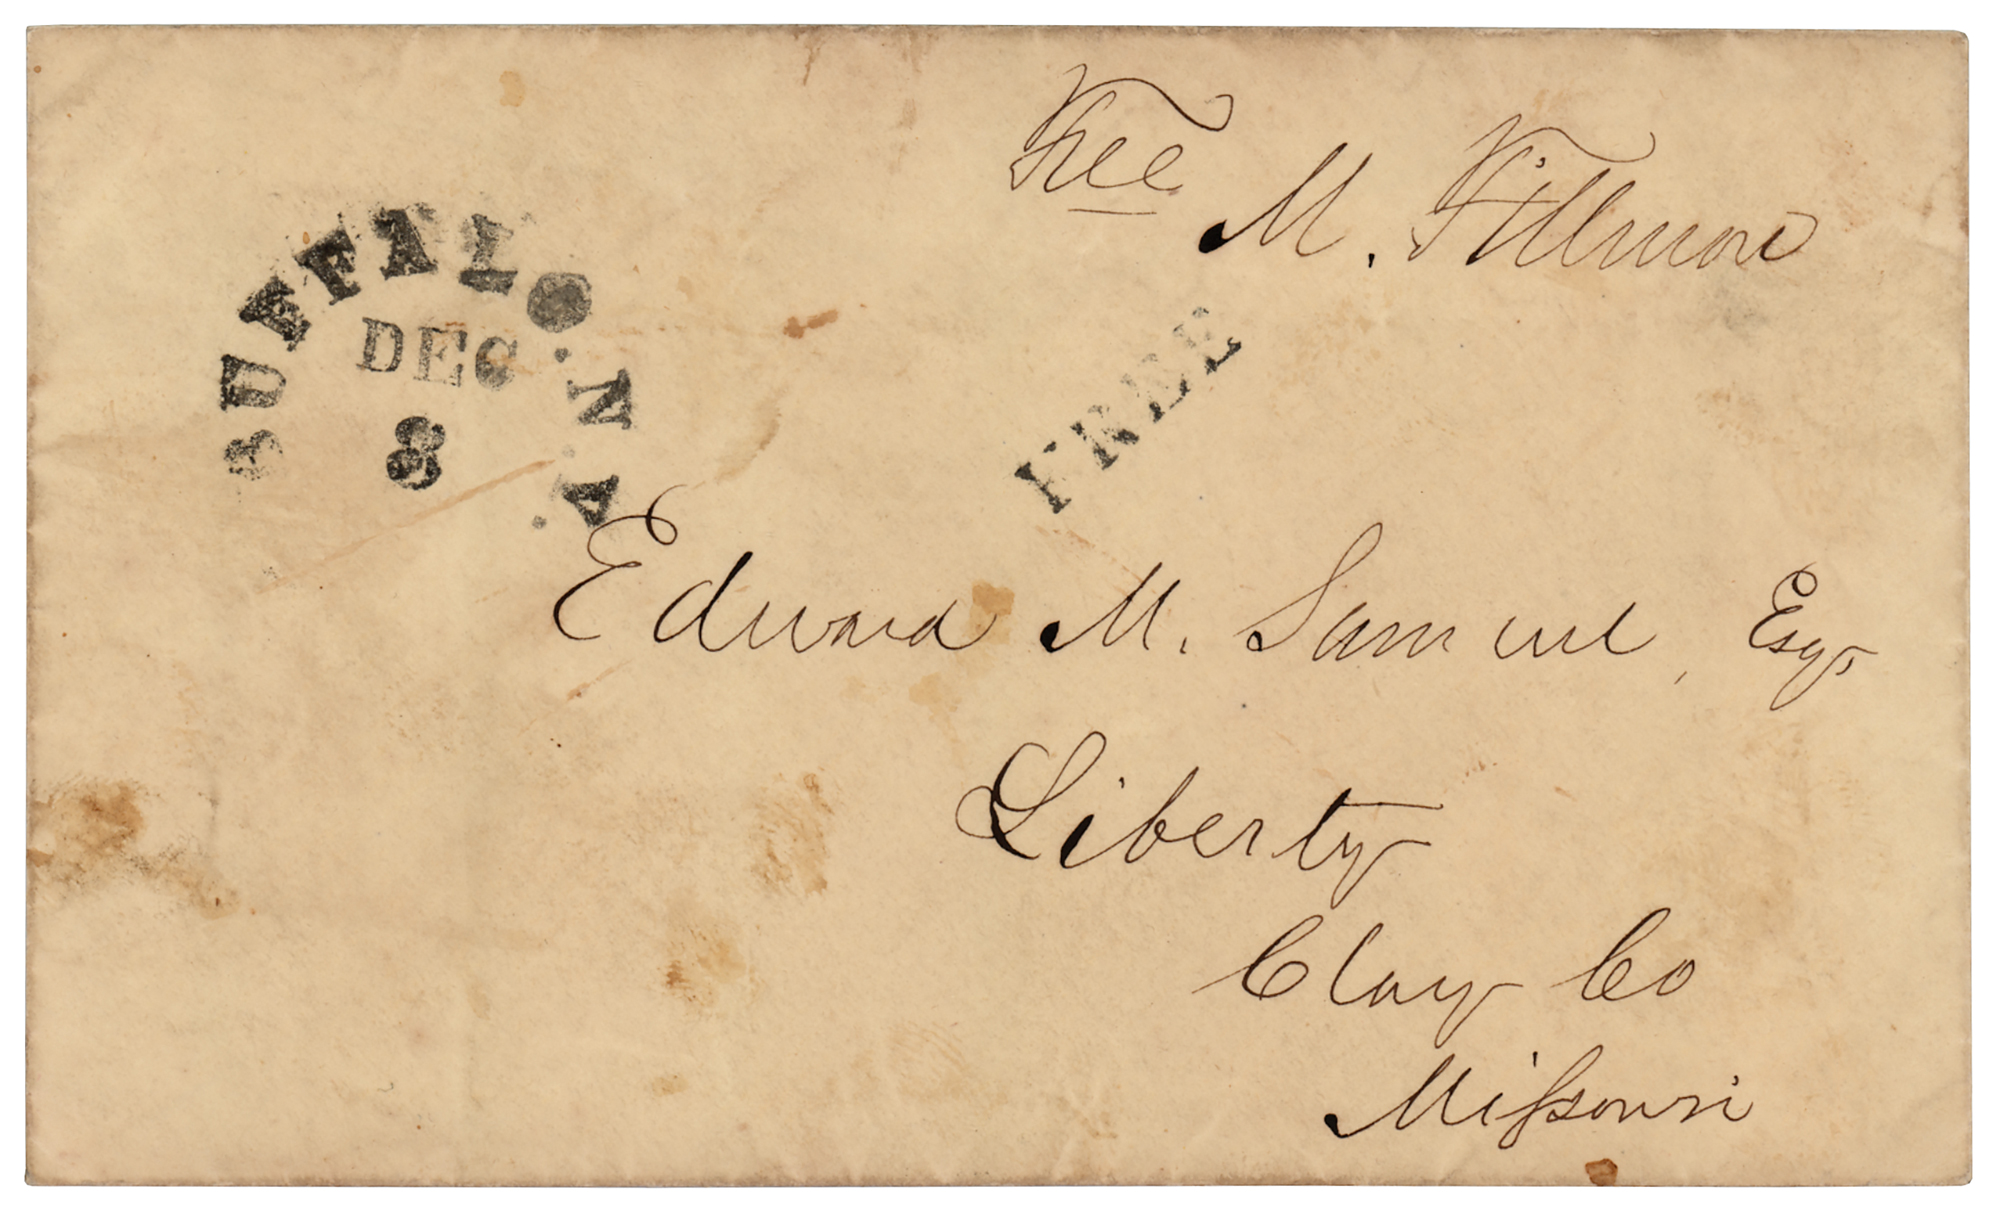 Free
M. Fillmore
BUFFALO . N . Y .
DEC
8
FREE
Edward M. Samuel, Esq.
Liberty
Clay Co
Missouri